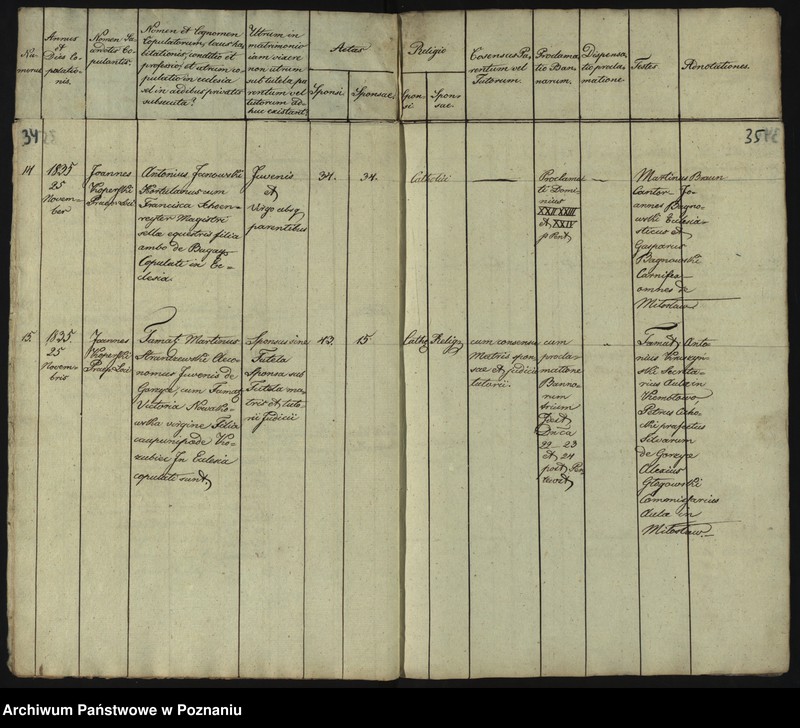 Nu-
merus
Annus
et
Dies Co-
pulatio-
nis.
Nomen Sa-
cerdotis Co-
pulantis.
Nomen et Cognomen
Copulatorum, locus ha-
bitationis, conditio et
professio, et utrum co-
pulatio in ecclesia
vel in aedibus privatis
subsecuta?
Utrum in
matrimonio
iam vixere
non utrum
sub tutela pa-
rentum vel
tutorum ad-
huc existant
Aetas
Sponsi.
Sponsae.
Religio
Spon-
si
Spon-
sae.
Consensus Pa-
rentum vel
Tutorum.
Proclama-
tio Ban-
narum.
Dispensa-
tio procla-
matione.
Testes
Adnotationes.
34
35
14
1835
25
Novem-
ber
Joannes
Praep
Antonius
Hortulanus cum
Francisca
Magistri
sellae equestris filia
ambo de Bugay
Copulati in Ec-
clesia.
Juvenis
et
virgo absq
parentibus
34.
34.
Catholici
Proclama-
ti Domi-
nius
XXII XXIII
et XXIV
p Pent
Martinus Braun
Cantor Jo-
annes Bagno-
wski Ecclesia-
sticus et
Gasparus
Bagnowski
omnes de
Miłosław
15.
1835.
25
Novem-
bris
Joannes
Praep
Famat Martinus
Oeco-
nomus Juvenis de
Gorzyce, cum Famat
Victoria Nowako-
wska virgine Filia
de
In Ecclesia
copulati sunt
Sponsus sine
Tutela
Sponsa sub
Tutela ma-
tris et tuto-
rii Judicii
43.
15.
Cathq
Religi
cum consensu
Matris spon
sae et judicii
tutorii.
cum
procla-
matione
Banno-
rum
trium
fuit
Dnca
22 23
et 24
post Pen
Famat Anto-
nius
ski Secreta-
rius Aulae in
Petrus
ski praefectus
Silvarum
de Gorzyce
Alexius
Commissarius
Aulae in
Miłosław.
Archiwum Państwowe w Poznaniu